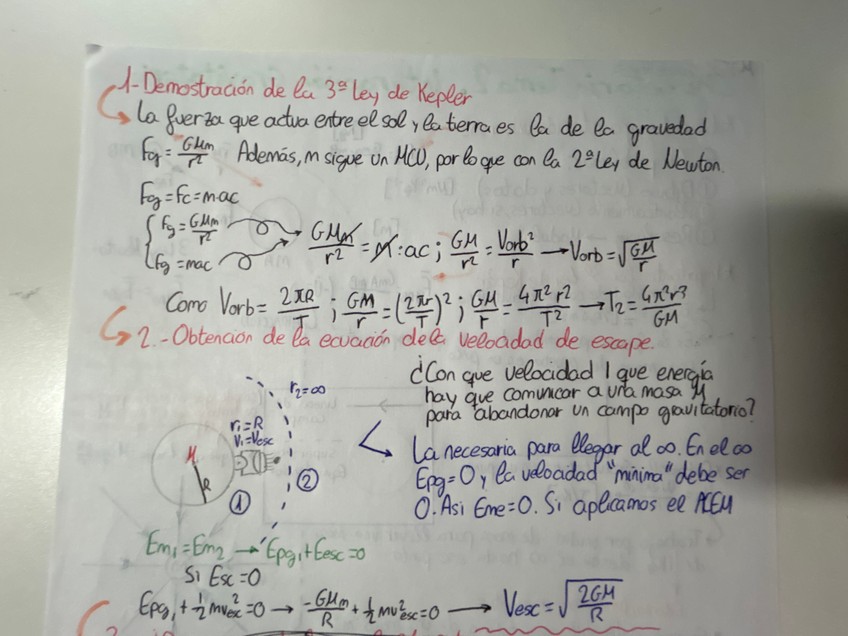 1-Demostración de la 3ª Ley de Kepler
La fuerza que actua entre el sol y la tierra es la de la gravedad
Fg = GMm/r² Además, m sigue un MCU, por lo que con la 2ª Ley de Newton.
Fg = Fc = mac
{ Fg = GMm/r²
Fg = mac
GMm/r² = m·ac ; GM/r² = Vorb²/r → Vorb = √(GM/r)
Como Vorb = 2πR/T ; GM/r = (2πr/T)² ; GM/r = 4π²r²/T² → T2 = 4π²r³/GM
2.-Obtencion de la ecuación de la velocidad de escape.
¿Con que velocidad / que energía
hay que comunicar a una masa M
para abandonar un campo gravitatorio?
r2 = ∞
r1 = R
V1 = Vesc
M
R
1
2
La necesaria para llegar al ∞. En el ∞
Epg = 0 y la velocidad "mínima" debe ser
0. Asi Eme = 0. Si aplicamos el PCEM
Em1 = Em2 → Epg1 + Eesc = 0
Si Esc = 0
Epg1 + ½mv²esc = 0 → -GMm/R + ½mv²esc = 0 → Vesc = √(2GM/R)